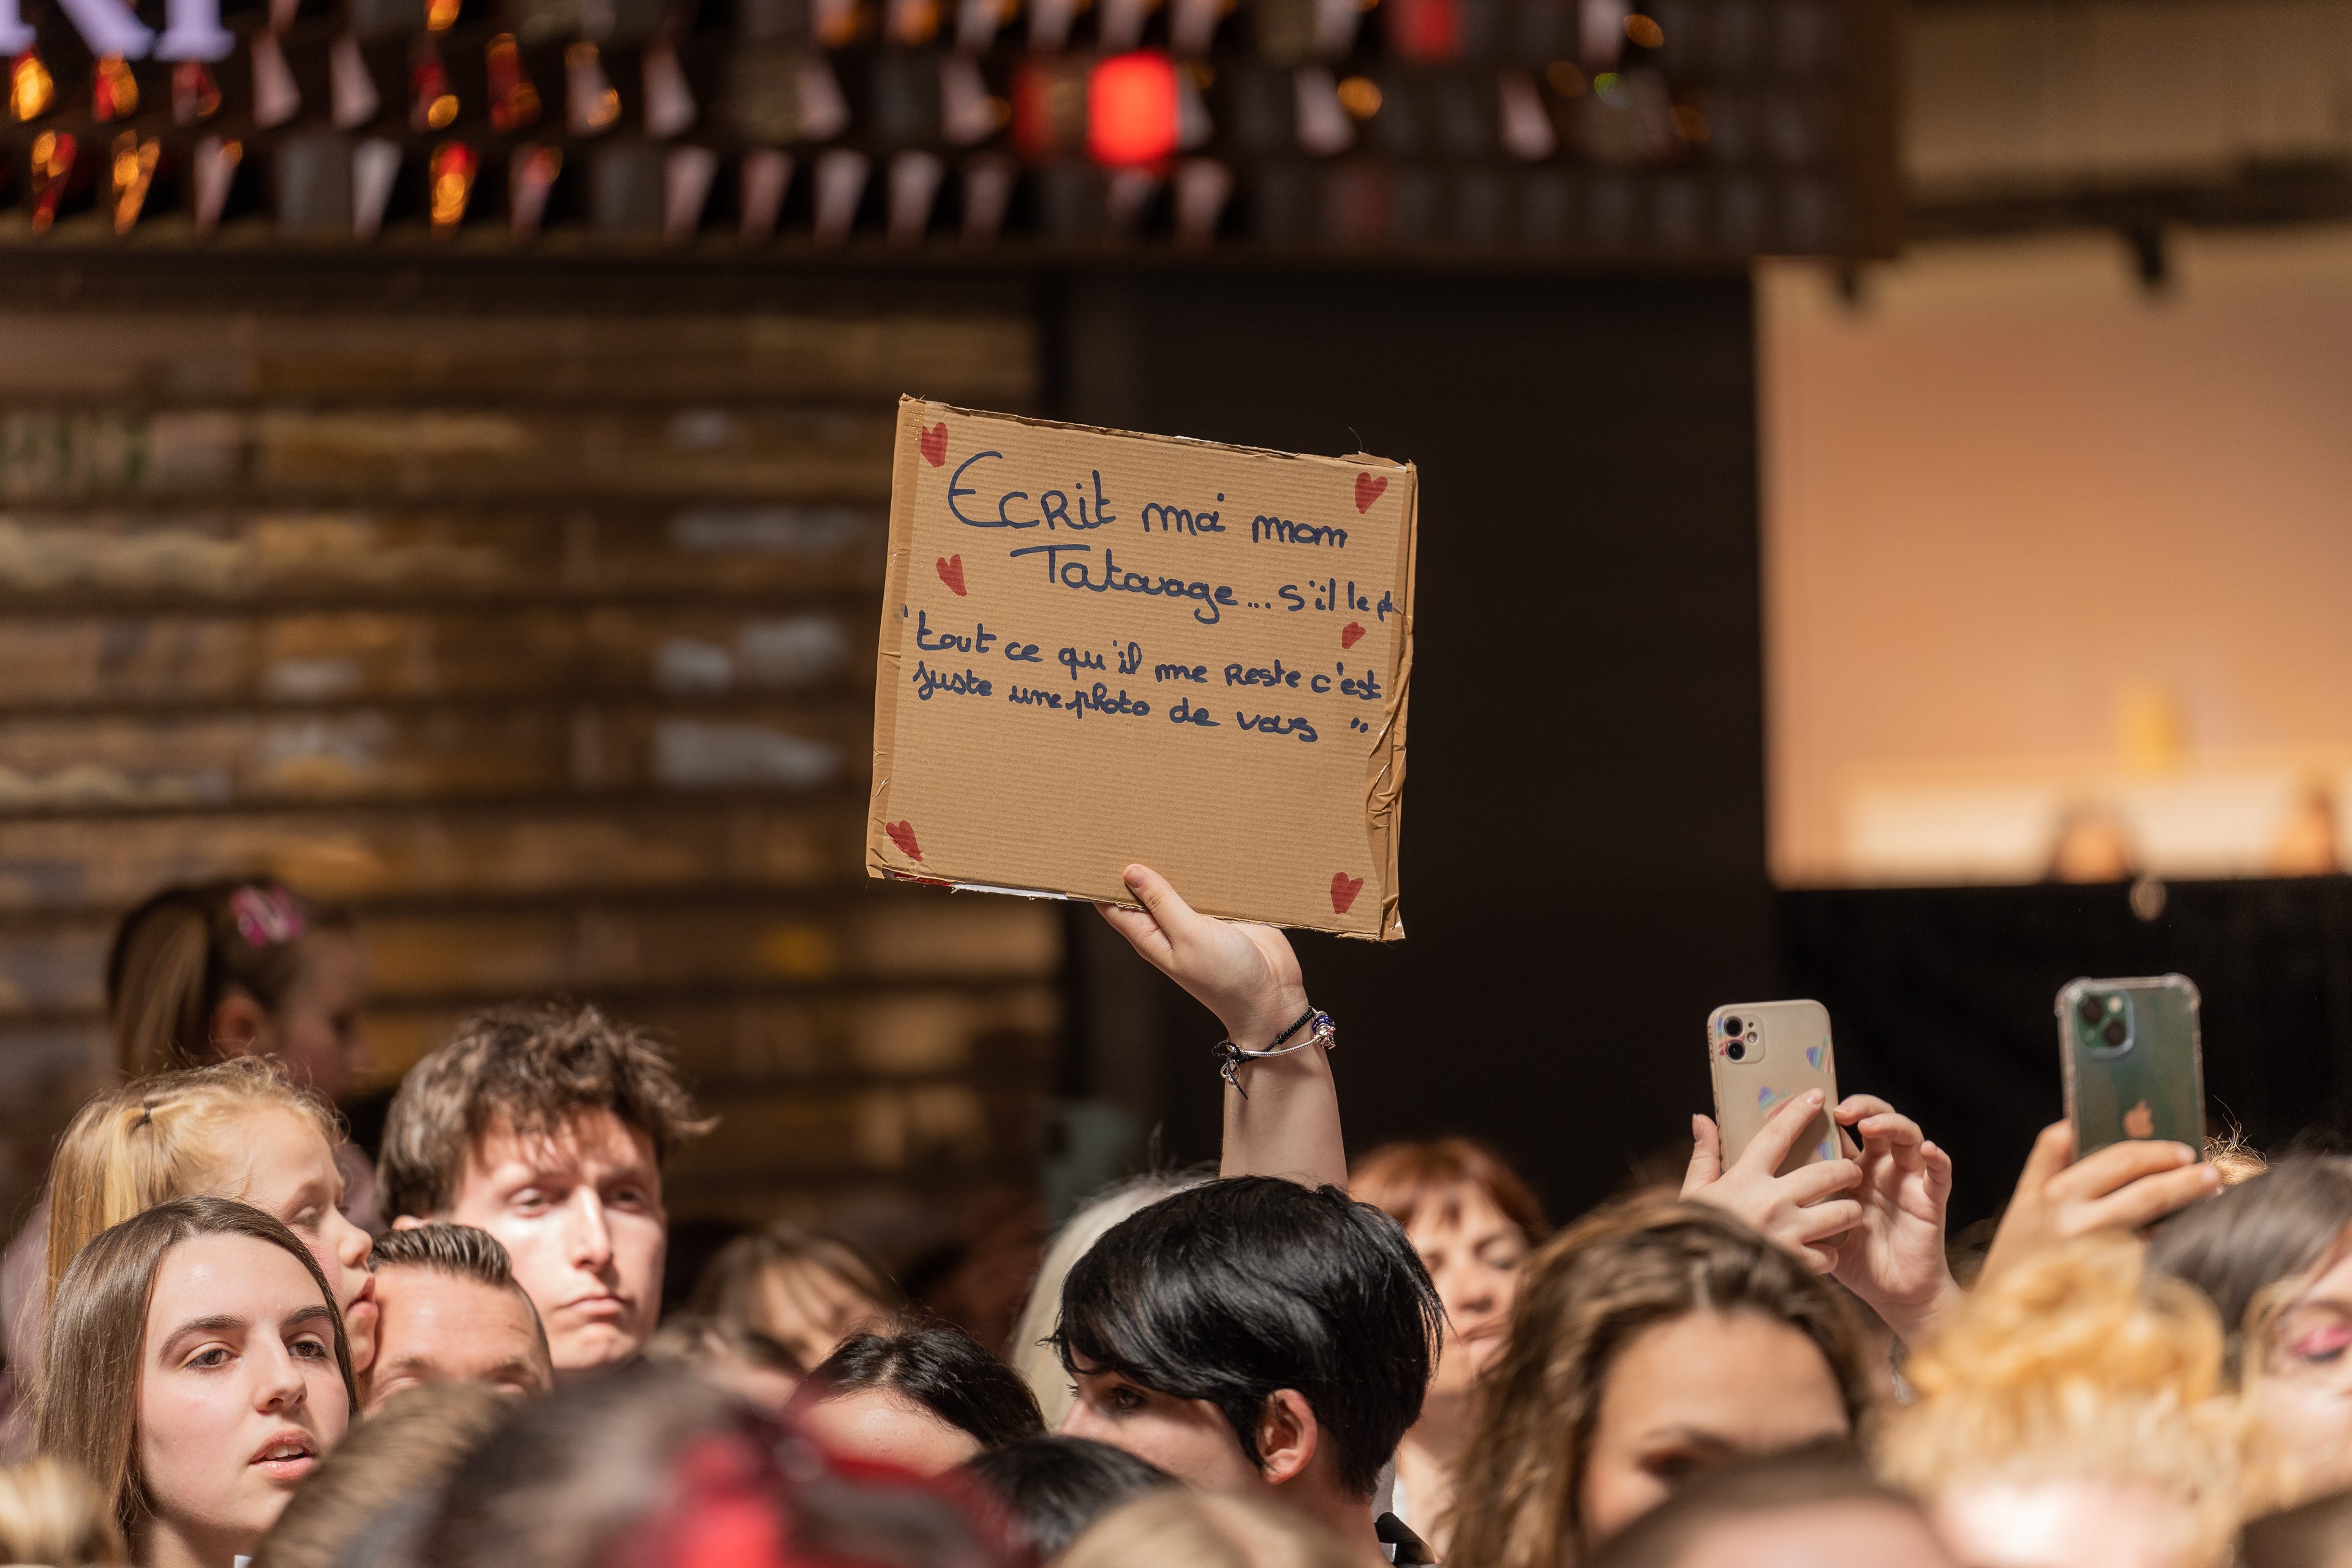 Ecrit moi mon
Tatouage... s'il le pl
"tout ce qu'il me reste c'est
juste une photo de vous "